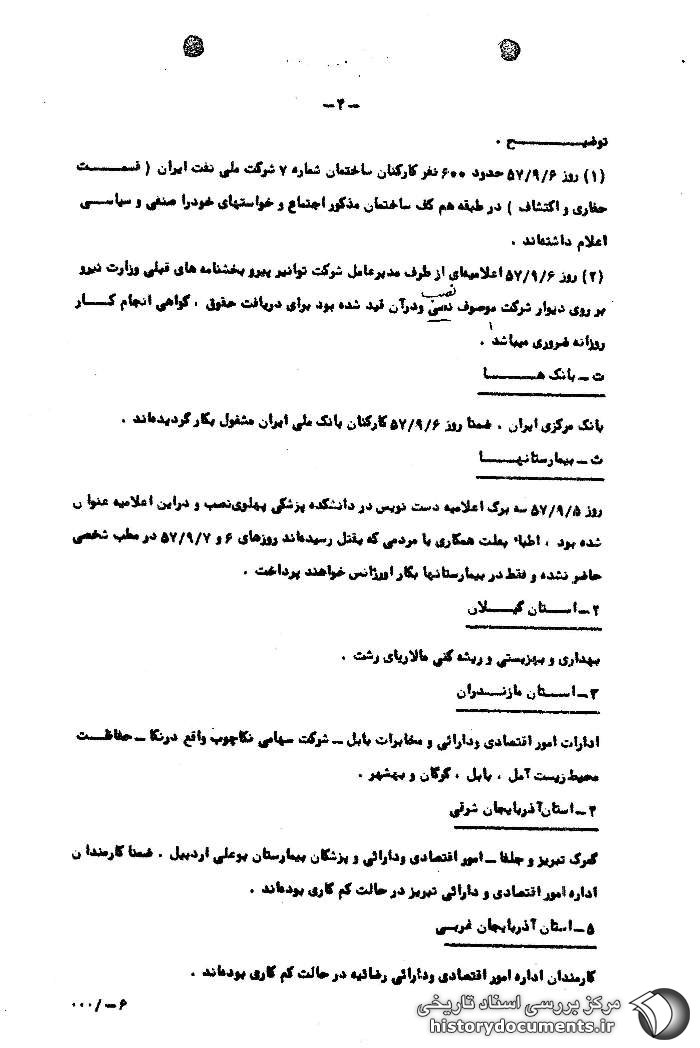 -۴-
توضیح .
(۱) روز ۵۷/۹/۶ حدود ۶۰۰ نفر کارکنان ساختمان شماره ۷ شرکت ملی نفت ایران ( قسمت
حفاری و اکتشاف ) در طبقه هم کف ساختمان مذکور اجتماع و خواستهای خودرا صنفی و سیاسی
اعلام داشته‌اند .
(۲) روز ۵۷/۹/۶ اعلامیه‌ای از طرف مدیرعامل شرکت توانیر پیرو بخشنامه های قبلی وزارت نیرو
نصب
بر روی دیوار شرکت موصوف ودرآن قید شده بود برای دریافت حقوق ، گواهی انجام کار
روزانه ضروری میباشد .
ت - بانک ها
بانک مرکزی ایران . ضمنا روز ۵۷/۹/۶ کارکنان بانک ملی ایران مشغول بکار گردیده‌اند .
ث - بیمارستانها
روز ۵۷/۹/۵ سه برگ اعلامیه دست نویس در دانشکده پزشکی پهلوی‌نصب و دراین اعلامیه عنوان
شده بود ، اطباء بعلت همکاری با مردمی که بقتل رسیده‌اند روزهای ۶ و ۵۷/۹/۷ در مطب شخصی
حاضر نشده و فقط در بیمارستانها بکار اورژانس خواهند پرداخت .
۲ - استان گیلان
بهداری و بهزیستی و ریشه کنی مالاریای رشت .
۳ - استان مازندران
ادارات امور اقتصادی ودارائی و مخابرات بابل - شرکت سهامی نکاچوب واقع درنکا - حفاظت
محیط زیست آمل ، بابل ، گرگان و بهشهر .
۴ - استان آذربایجان شرقی
گمرک تبریز و جلفا - امور اقتصادی ودارائی و پزشکان بیمارستان بوعلی اردبیل . ضمنا کارمندان
اداره امور اقتصادی و دارائی تبریز در حالت کم کاری بوده‌اند .
۵ - استان آذربایجان غربی
کارمندان اداره امور اقتصادی ودارائی رضائیه در حالت کم کاری بوده‌اند .
۶ - /۰۰۰
مرکز بررسی اسناد تاریخی
historydocuments.ir